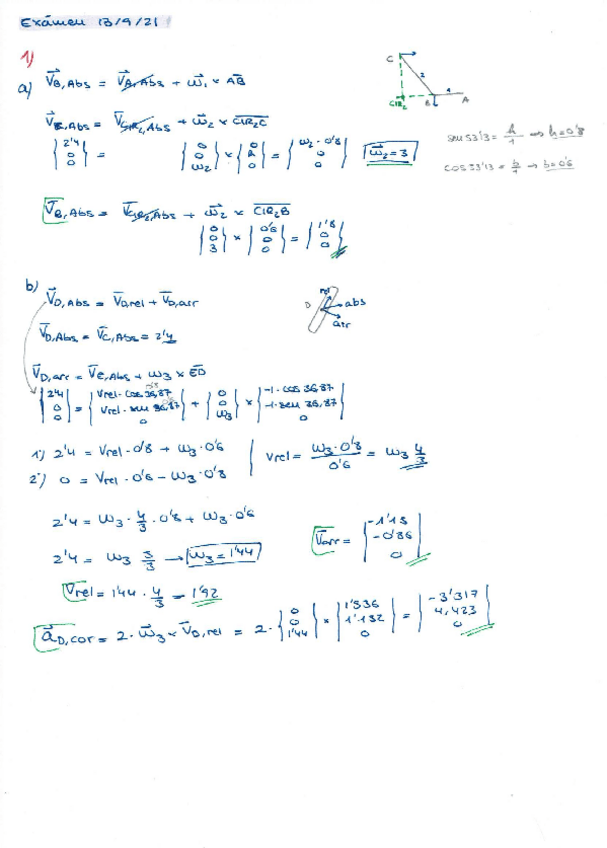 Exámen 13/9/21
1)
a) V̄B,Abs = V̄A,Abs + ω̄1 × AB
C
2
CIR2 B 1 A
V̄C,Abs = V̄CIR2,Abs + ω̄2 × CIR2C
sen 53'13 = h/1 → h=0'8
cos 53'13 = b/1 → b=0'6
|2'4 0 0| = |0 0 ω2| × |0 h 0| = |ω2·0'8 0 0| ω̄2=3
V̄B,Abs = V̄CIR2,Abs + ω̄2 × CIR2B
|0 0 3| × |0'6 0 0| = |1'8 0 0|
b) V̄D,Abs = V̄D,rel + V̄D,arr
D rel abs arr
V̄D,Abs = V̄C,Abs = 2'4
V̄D,arr = V̄E,Abs + ω3 × ED
|2'4 0 0| = |Vrel·cos 36,87 Vrel·sen 36,87 0| + |0 0 ω3| × |-1·cos 36,87 -1·sen 36,87 0|
1) 2'4 = Vrel·0'8 + ω3·0'6
2) 0 = Vrel·0'6 - ω3·0'8
Vrel = ω3·0'8/0'6 = ω3 4/3
2'4 = ω3·4/3·0'8 + ω3·0'6
2'4 = ω3 5/3 → ω3=1'44
V̄arr = |-1'15 -0'86 0|
Vrel = 1'44·4/3 = 1'92
āD,cor = 2·ω̄3 × V̄D,rel = 2·|0 0 1'44| × |1'536 1'152 0| = |-3'317 4,423 0|